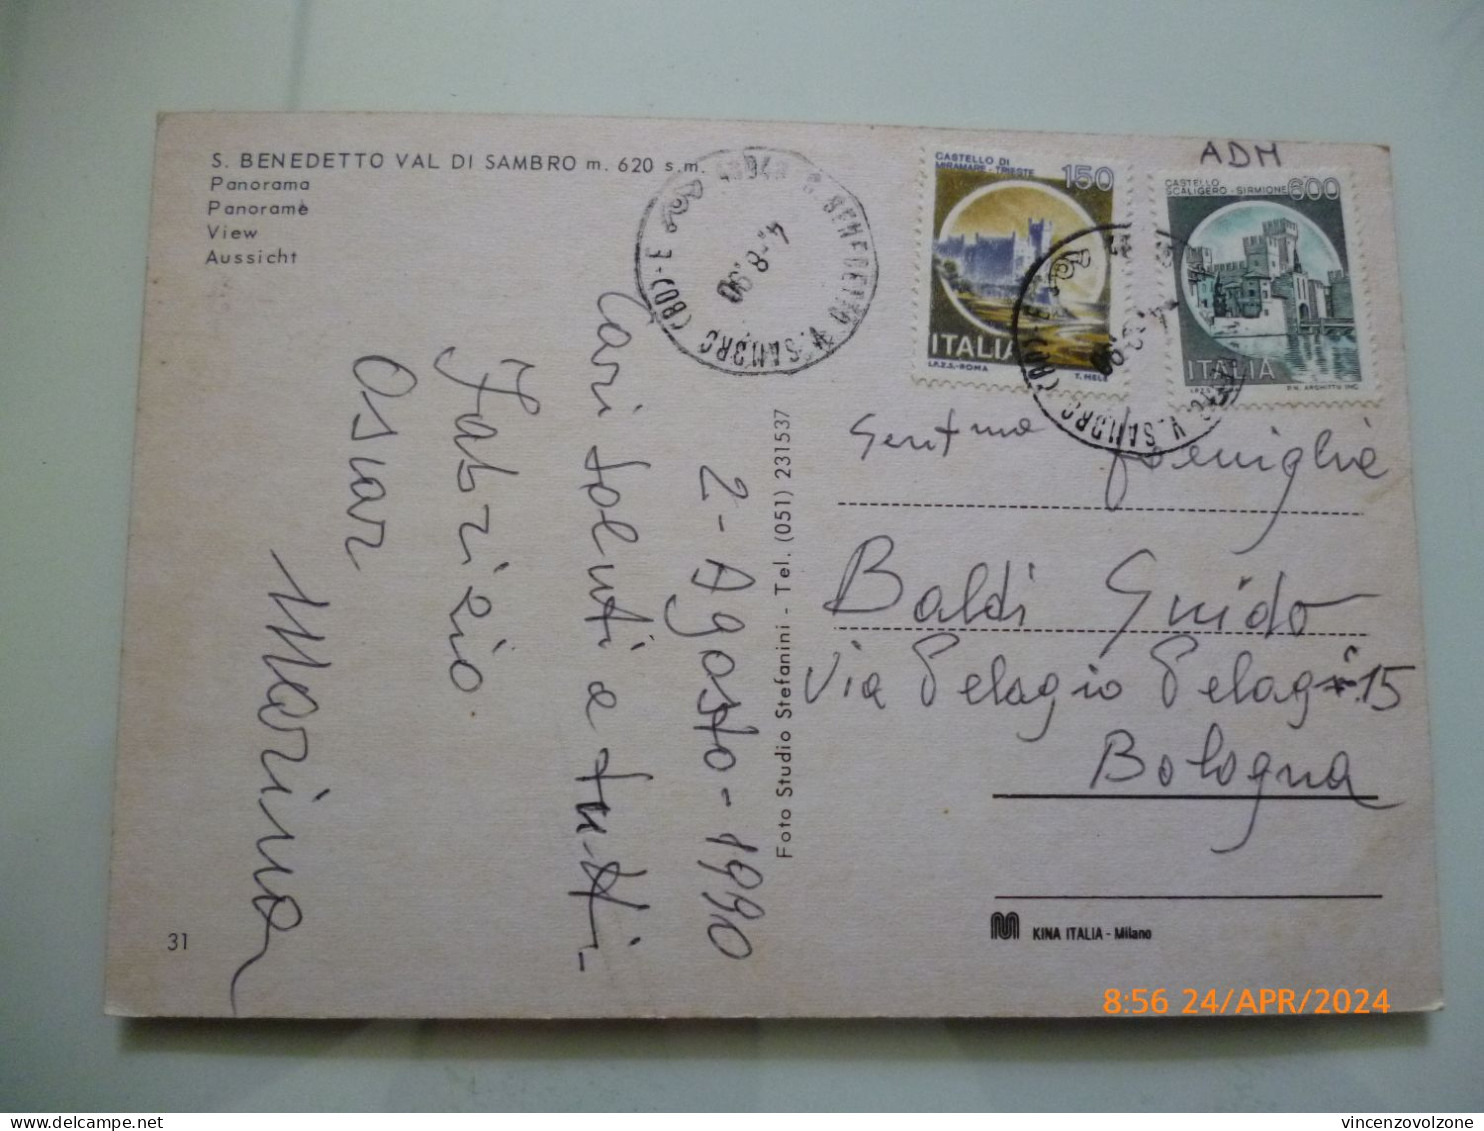 S. BENEDETTO VAL DI SAMBRO m. 620 s.m.
Panorama
Panoramè
View
Aussicht
2 - Agosto - 1990
Cari saluti a tutti -
Fabrizio
Oscar
Marina
31
Foto Studio Stefanini - Tel. (051) 231537
4.-8.90
S. BENEDETTO V. SAMBRO (BO)-E
CASTELLO DI
MIRAMARE - TRIESTE
150
ITALIA
I.P.Z.S.-ROMA
T. MELE
ADM
CASTELLO
SCALIGERO - SIRMIONE
600
ITALIA
V. SAMBRO (BO)-E
Gent.ma famiglia
Baldi Guido
Via Pelagio Pelagi 15
Bologna
KINA ITALIA - Milano
8:56 24/APR/2024
vincenzovolzone